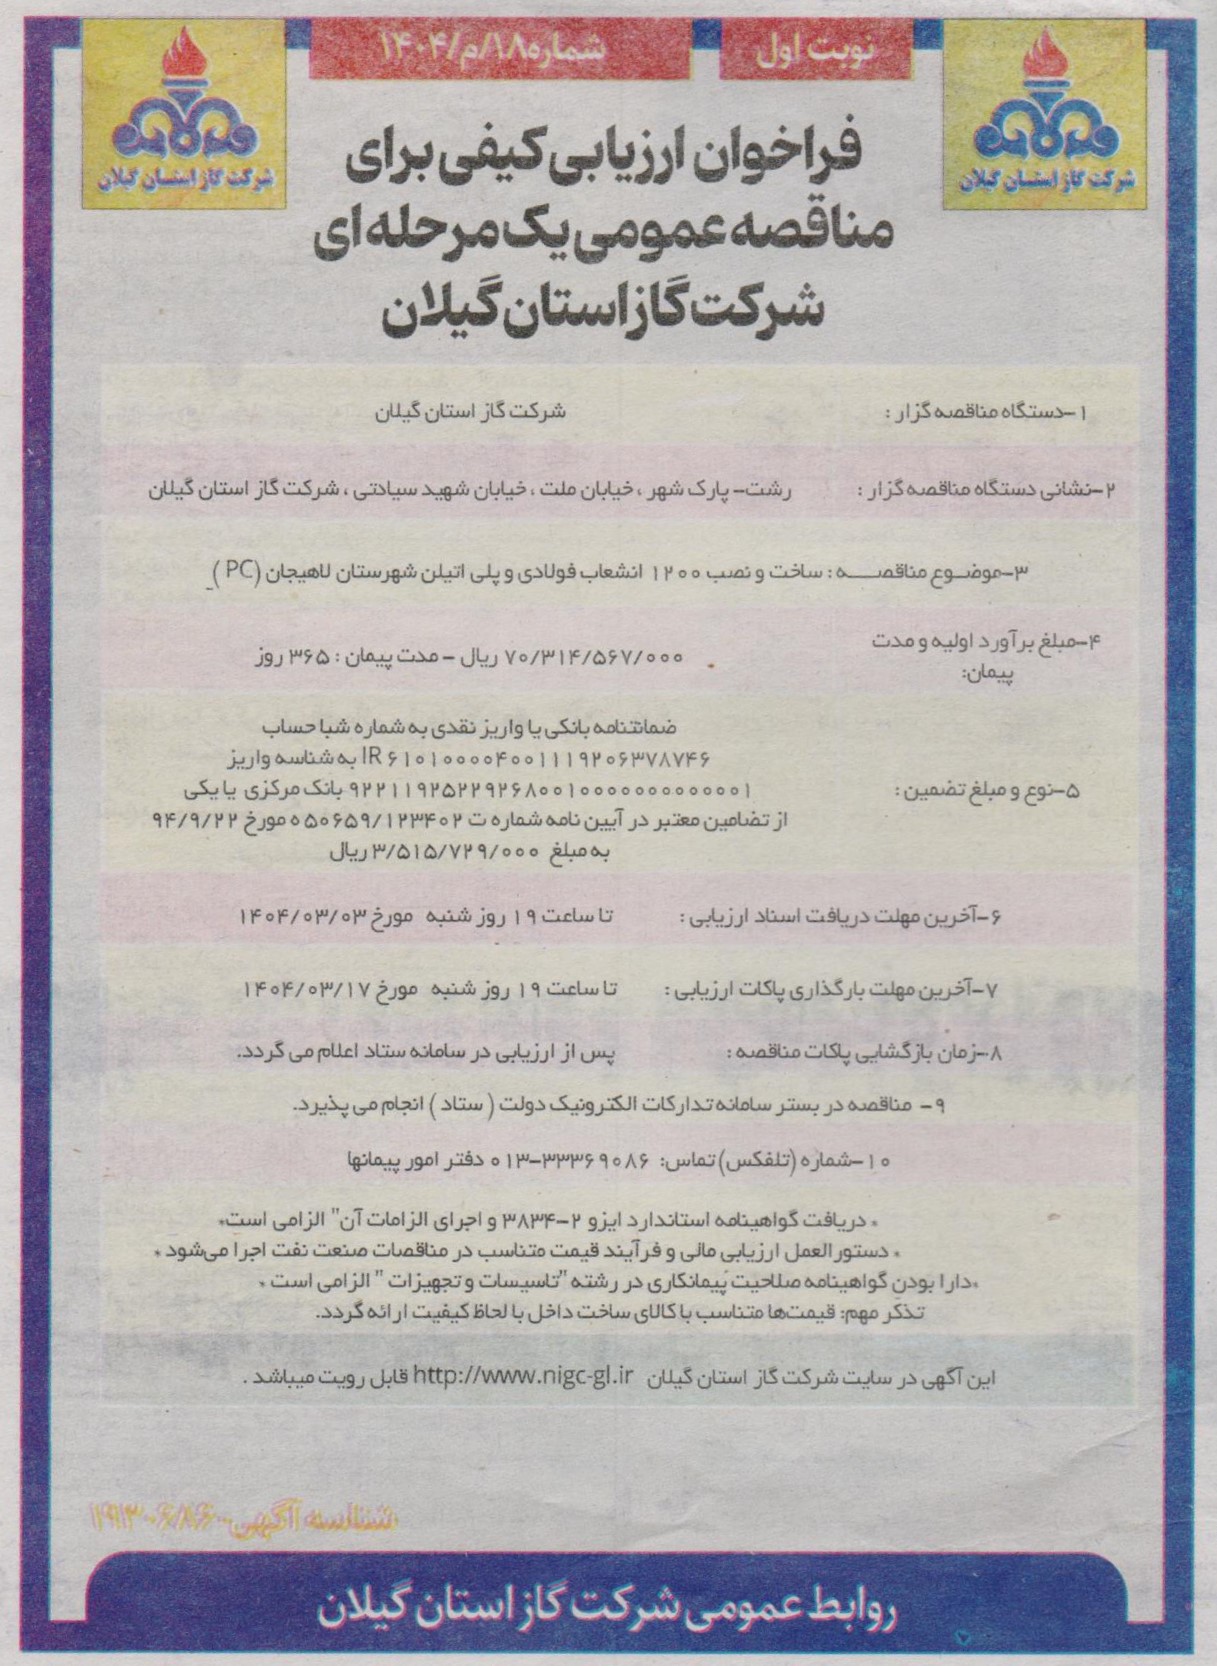 نوبت اول
شماره ۱۸/م/۱۴۰۴
شرکت گاز استان گیلان
شرکت گاز استان گیلان
فراخوان ارزیابی کیفی برای
مناقصه عمومی یک مرحله ای
شرکت گاز استان گیلان
۱-دستگاه مناقصه گزار : شرکت گاز استان گیلان
۲-نشانی دستگاه مناقصه گزار : رشت- پارک شهر ، خیابان ملت ، خیابان شهید سیادتی ، شرکت گاز استان گیلان
۳-موضـوع مناقصـــه : ساخت و نصب ۱۲۰۰ انشعاب فولادی و پلی اتیلن شهرستان لاهیجان (PC)_
۴-مبلغ برآورد اولیه و مدت
پیمان:
۷۰/۳۱۴/۵۶۷/۰۰۰ ریال - مدت پیمان : ۳۶۵ روز
۵-نوع و مبلغ تضمین :
ضمانتنامه بانکی یا واریز نقدی به شماره شبا حساب
IR ۶۱۰۱۰۰۰۰۴۰۰۱۱۱۹۲۰۶۳۷۸۷۴۶ به شناسه واریز
۹۲۲۱۱۹۲۵۲۲۹۲۶۸۰۰۱۰۰۰۰۰۰۰۰۰۰۰۰۱ بانک مرکزی یا یکی
از تضامین معتبر در آیین نامه شماره ت ۵۰۶۵۹/۱۲۳۴۰۲ ه مورخ ۹۴/۹/۲۲
به مبلغ ۳/۵۱۵/۷۲۹/۰۰۰ ریال
۶-آخرین مهلت دریافت اسناد ارزیابی : تا ساعت ۱۹ روز شنبه مورخ ۱۴۰۴/۰۳/۰۳
۷-آخرین مهلت بارگذاری پاکات ارزیابی : تا ساعت ۱۹ روز شنبه مورخ ۱۴۰۴/۰۳/۱۷
۸-زمان بازگشایی پاکات مناقصه : پس از ارزیابی در سامانه ستاد اعلام می گردد.
۹- مناقصه در بستر سامانه تدارکات الکترونیک دولت ( ستاد ) انجام می پذیرد.
۱۰-شماره (تلفکس) تماس: ۳۳۳۶۹۰۸۶-۰۱۳ دفتر امور پیمانها
* دریافت گواهینامه استاندارد ایزو ۲-۳۸۳۴ و اجرای الزامات آن" الزامی است*
* دستورالعمل ارزیابی مالی و فرآیند قیمت متناسب در مناقصات صنعت نفت اجرا می‌شود *
*دارا بودن گواهینامه صلاحیت پیمانکاری در رشته "تاسیسات و تجهیزات " الزامی است *
تذکر مهم: قیمت‌ها متناسب با کالای ساخت داخل با لحاظ کیفیت ارائه گردد.
این آگهی در سایت شرکت گاز استان گیلان http://www.nigc-gl.ir قابل رویت میباشد .
شناسه آگهی:
روابط عمومی شرکت گاز استان گیلان